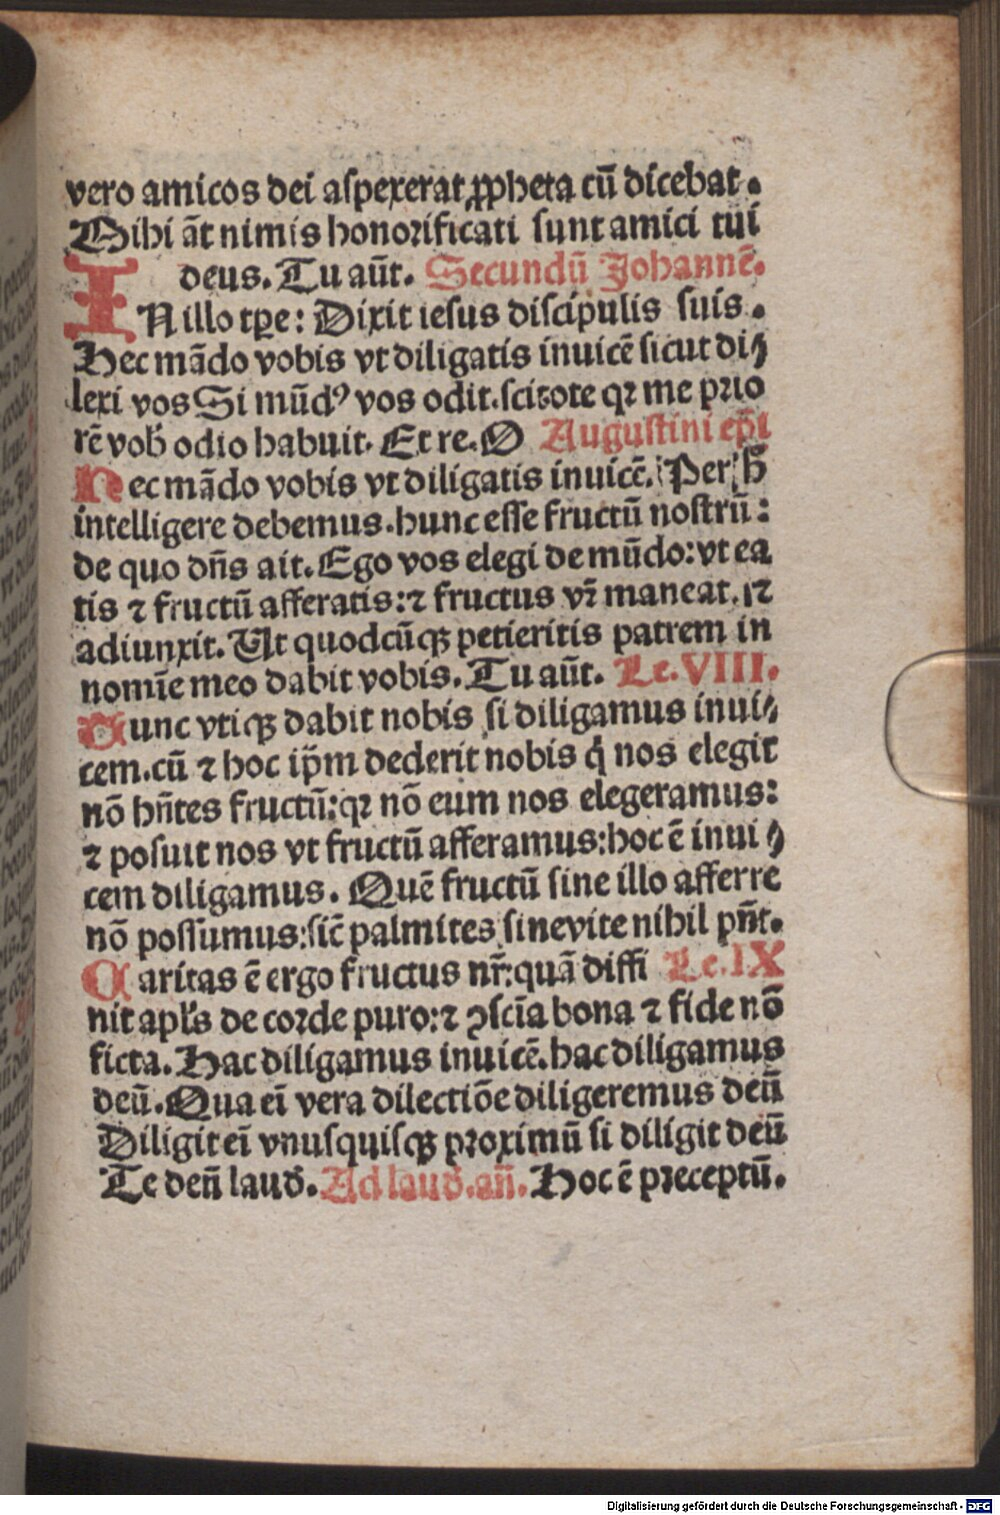 vero amicos dei aſpexerat ꝓpheta cū dicebat.
Mihi āt nimis honorificati ſunt amici tui
deus. Tu aūt. Secundū Johannē.
IN illo tꝑe: Dixit ieſus diſcipulis ſuis.
Hec mādo vobis vt diligatis inuicē ſicut di⸗
lexi vos Si mūdꝰ vos odit. ſcitote qꝛ me prio
rē vob̄ odio habuit. Et re. O Auguſtini ep̄i
Hec mādo vobis vt diligatis inuicē. Per h̄
intelligere debemus. hunc eſſe fructū noſtrū:
de quo dn̄s ait. Ego vos elegi de mūdo: vt ea
tis ⁊ fructū afferatis: ⁊ fructus vr̄ maneat. ⁊
adiunxit. Ut quodcūqꝫ petieritis patrem in
nomīe meo dabit vobis. Tu aūt. Le. VIII.
Nunc vtiqꝫ dabit nobis ſi diligamus inui⸗
cem. cū ⁊ hoc ip̄m dederit nobis q̇ nos elegit
nō hn̄tes fructū: qꝛ nō eum nos elegeramus:
⁊ poſuit nos vt fructū afferamus: hoc ē inui⸗
cem diligamus. Quē fructū ſine illo afferre
nō poſſumus: ſic̄ palmites ſine vite nihil pn̄t.
Caritas ē ergo fructus nr̄: quā diffi Le. IX
nit apl̓s de corde puro: ⁊ ꝯſcīa bona ⁊ fide nō
ficta. Hac diligamus inuicē. hac diligamus
deū. Qua eī vera dilectiōe diligeremus deū
Diligit eī vnuſquiſqꝫ proximū ſi diligit deū
Te deū laud̓. Ad laud̓. an̄. Hoc ē preceptū.
Digitalisierung gefördert durch die Deutsche Forschungsgemeinschaft - DFG